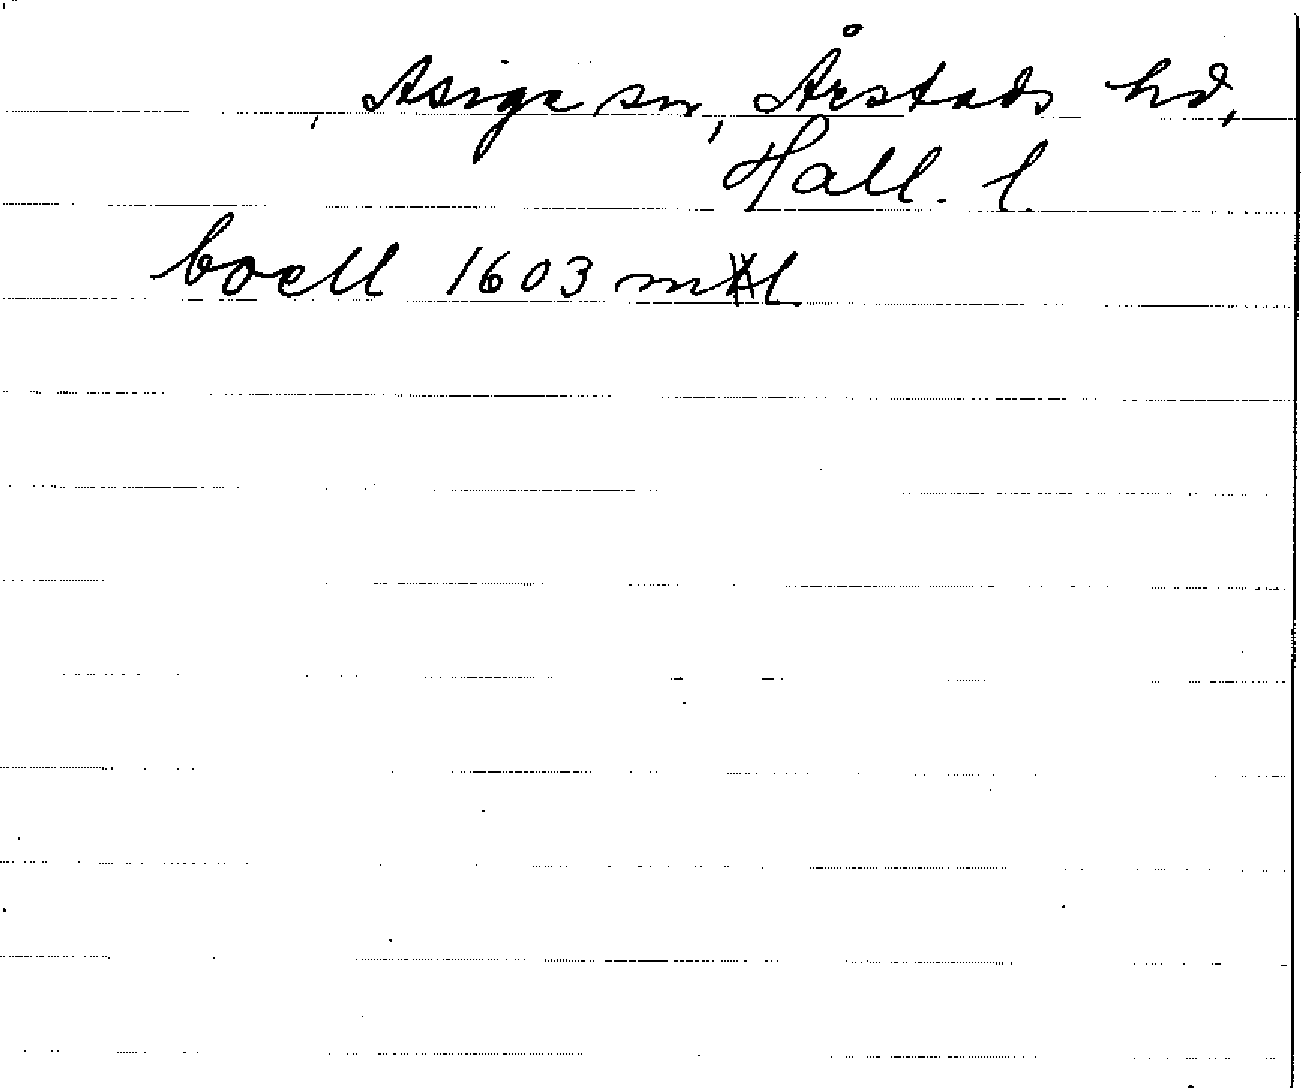 Asige sn, Årstads hd,
Hall. l.
boell 1603